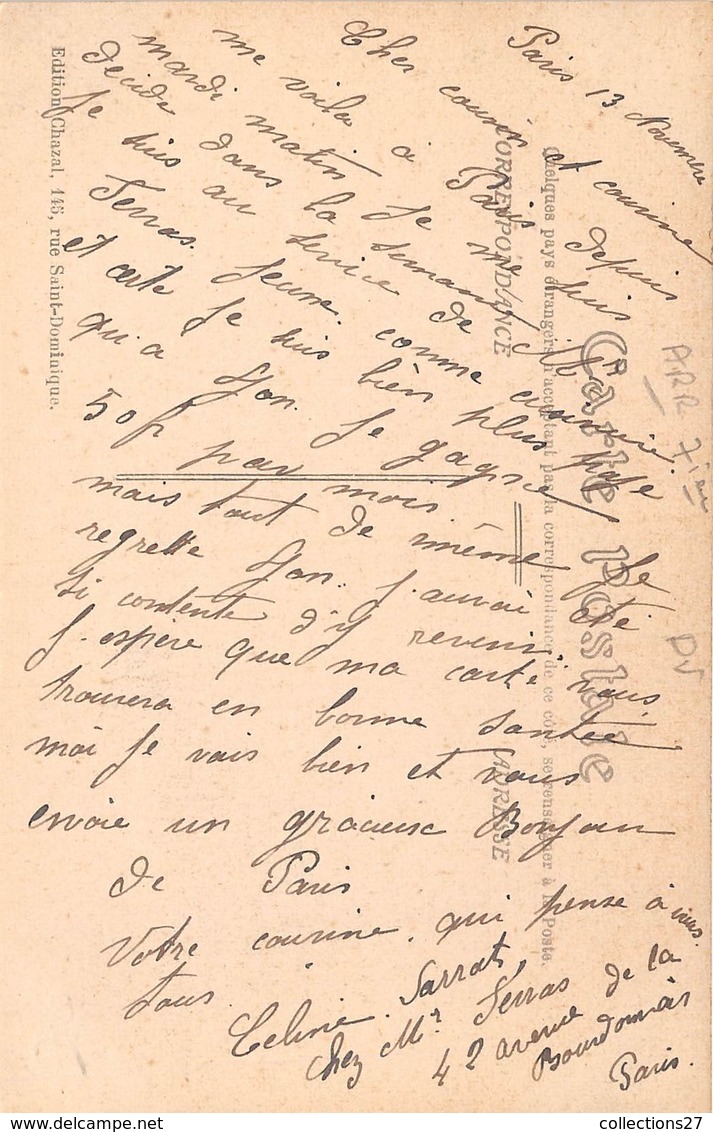 Paris 13 Novembre
Cher cousin et cousine
me voila à Paris depuis
mardi matin Je me suis
décidé dans la semaine
Je suis au service de Mr
Ferras. Jeune. comme cuisinière.
et cette Je suis bien plus payé
qu'a Lyon. Je gagne
50f par mois
mais tout de même Je
regrette Lyon. J'aurai été
si contente d'y revenir.
J'espère que ma carte vous
trouvera en bonne santée
moi Je vais bien et vous
envoie un gracieux Bonjour
de Paris
Votre cousine. qui pense à vous
tous.
Celine Sarrat,
chez Mr Ferras
42 avenue de la
Bourdonnais
Paris.
Carte Postale
Quelques pays étrangers n'acceptant pas la correspondance de ce côté, se renseigner à la Poste.
CORRESPONDANCE
ADRESSE
Edition Chazal, 145, rue Saint-Dominique.
ARR 7ièm
DV
collections27